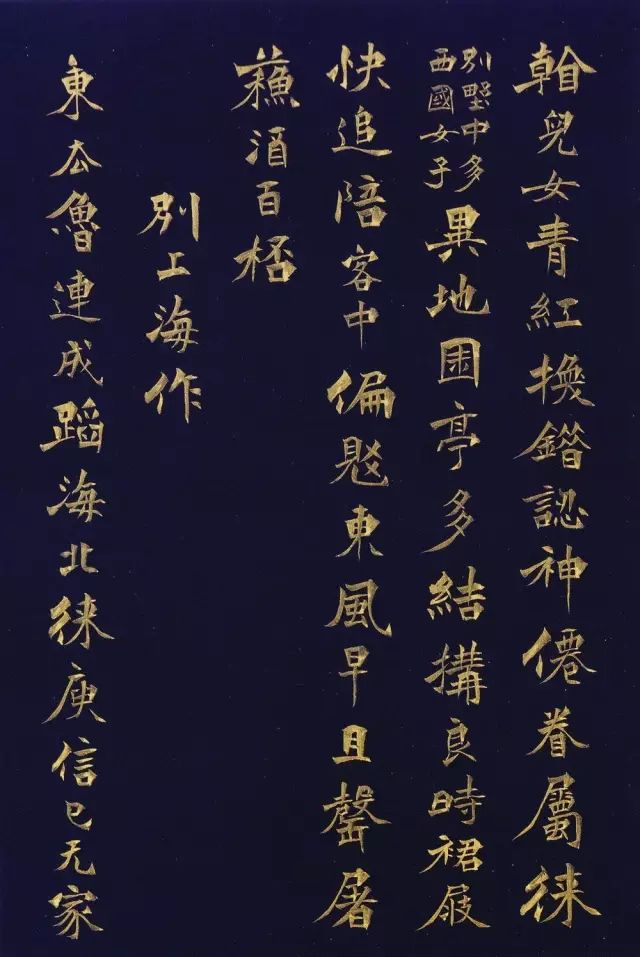 翰兒女青紅換錯認神僊眷屬徠
別墅中多
西國女子
異地園亭多結搆良時裙屐
快追陪客中偏覺東風早且罄屠
蘇酒百桮
別上海作
東去魯連成蹈海北徠庾信已无家